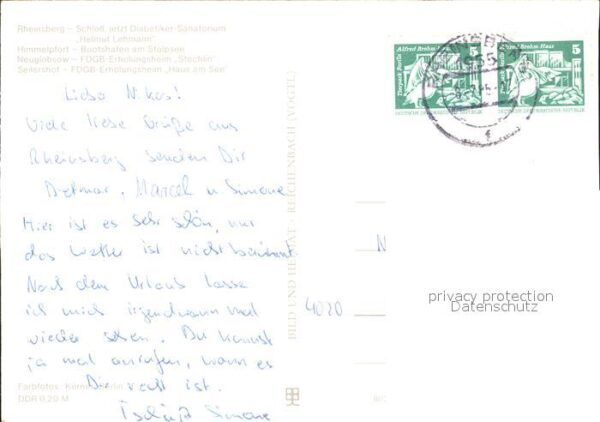 Rheinsberg – Schloß, jetzt Diabetiker-Sanatorium
„Helmut Lehmann"
Himmelpfort – Bootshafen am Stolpsee
Neuglobsow – FDGB-Erholungsheim „Stechlin"
Seilershof – FDGB-Erholungsheim „Haus am See"
Alfred Brehm Haus
5
Tierpark Berlin
DEUTSCHE DEMOKRATISCHE REPUBLIK
Alfred Brehm Haus
5
Tierpark Berlin
DEUTSCHE DEMOKRATISCHE REPUBLIK
Viele liebe Grüße aus
Rheinsberg senden Dir
Dietmar, Marcel u. Simone
Hier ist es sehr schön, nur
das Wetter ist nicht
Nach dem Urlaub lasse
ich mich irgendwann mal
wieder sehen. Du kannst
ja mal anrufen, wann es
Dir recht ist.
Tschüß Simone
BILD UND HEIMAT · REICHENBACH (VOGTL)
N
4020
privacy protection
Datenschutz
Farbfotos:
DDR 0,20 M